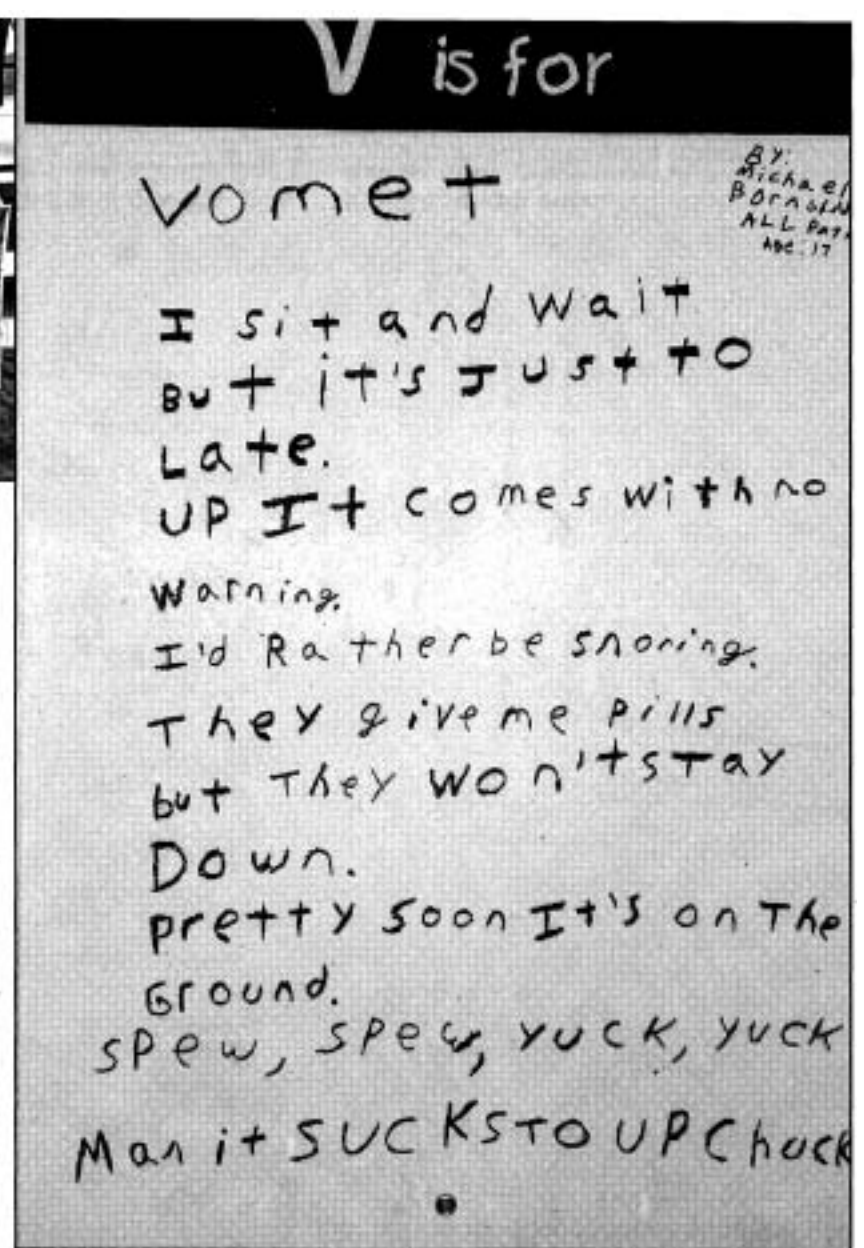 V is for
vomet
BY:
Michael
ALL
Age. 17
I sit and wait
But it's Just to
Late.
UP It comes with no
warning.
I'd Rather be snoring.
They give me pills
but They won't sTay
Down.
pretty soon It's on The
Ground.
spew, spew, yuck, yuck
Man it SUCKS TO UPChuck